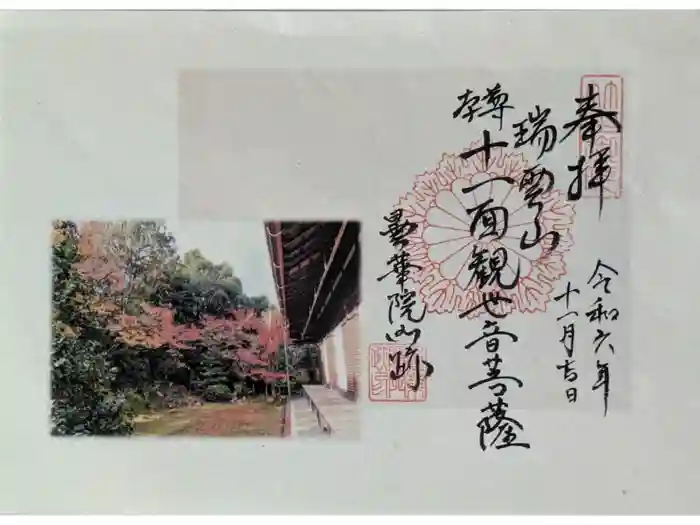 奉拝
瑞雲山
本尊
十一面観世音菩薩
曇華院山跡
令和六年
十一月吉日